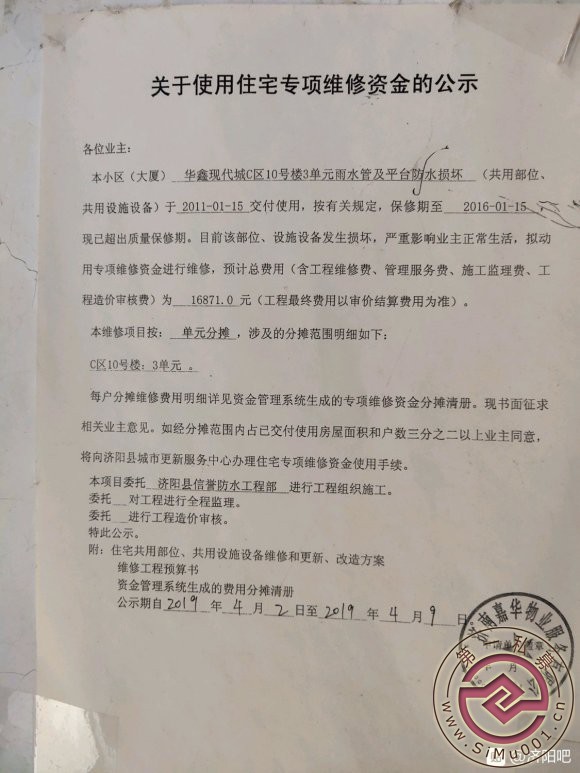 关于使用住宅专项维修资金的公示
各位业主：
本小区（大厦） 华鑫现代城C区10号楼3单元雨水管及平台防水损坏 （共用部位、
共用设施设备）于 2011-01-15 交付使用，按有关规定，保修期至 2016-01-15
现已超出质量保修期。目前该部位、设施设备发生损坏，严重影响业主正常生活，拟动
用专项维修资金进行维修，预计总费用（含工程维修费、管理服务费、施工监理费、工
程造价审核费）为 16871.0 元（工程最终费用以审价结算费用为准）。
本维修项目按： 单元分摊 ，涉及的分摊范围明细如下：
C区10号楼：3单元 。
每户分摊维修费用明细详见资金管理系统生成的专项维修资金分摊清册。现书面征求
相关业主意见。如经分摊范围内占已交付使用房屋面积和户数三分之二以上业主同意，
将向济阳县城市更新服务中心办理住宅专项维修资金使用手续。
本项目委托 济阳县信誉防水工程部 进行工程组织施工。
委托 对工程进行全程监理。
委托 进行工程造价审核。
特此公示。
附：住宅共用部位、共用设施设备维修和更新、改造方案
维修工程预算书
资金管理系统生成的费用分摊清册
公示期自2019 年 4 月 2 日至 2019 年 4 月 9 日
济南嘉华物业服务
申请单位盖章
月
私募
www.SiMu001.cn
@济阳吧